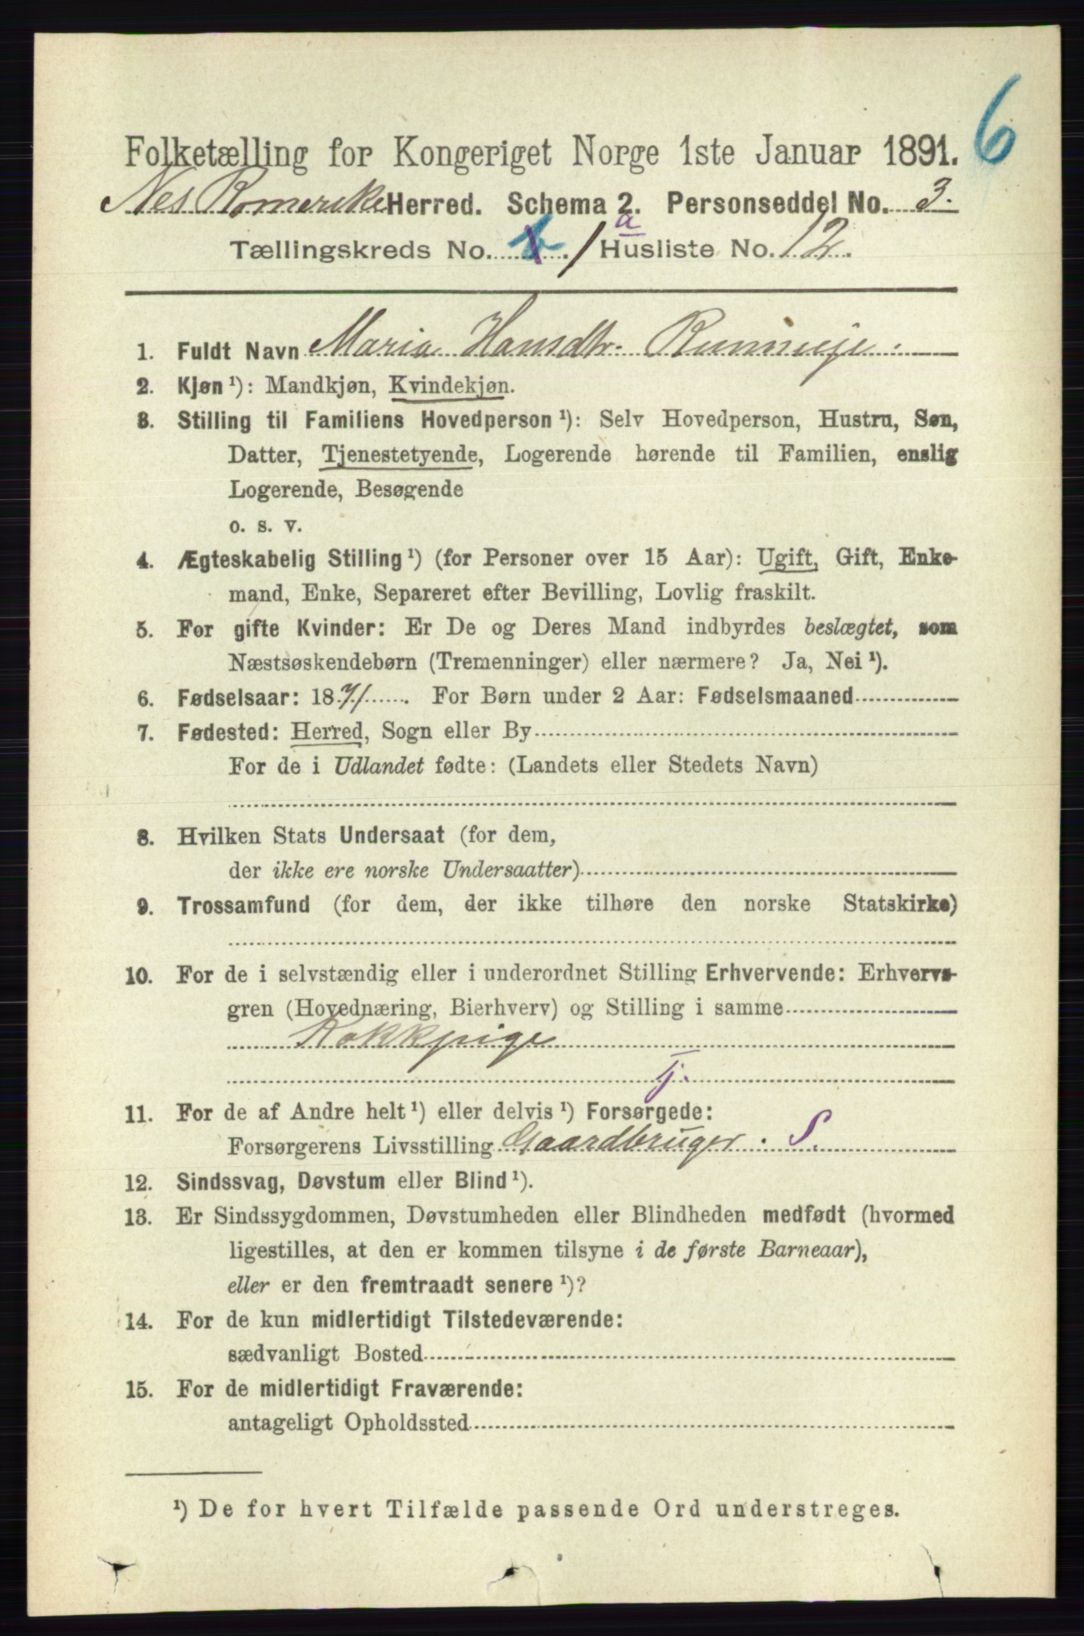 6
Folketælling for Kongeriget Norge 1ste Januar 1891.
Nes Romerike Herred. Schema 2. Personseddel No. 3.
a
Tællingskreds No. 6. / Husliste No. 12.
1. Fuldt Navn Maria Hansdtr.
2. Kjøn ¹): Mandkjøn, Kvindekjøn.
3. Stilling til Familiens Hovedperson ¹): Selv Hovedperson, Hustru, Søn,
Datter, Tjenestetyende, Logerende hørende til Familien, enslig
Logerende, Besøgende
o. s. v.
4. Ægteskabelig Stilling ¹) (for Personer over 15 Aar): Ugift, Gift, Enke-
mand, Enke, Separeret efter Bevilling, Lovlig fraskilt.
5. For gifte Kvinder: Er De og Deres Mand indbyrdes beslægtet, som
Næstsøskendebørn (Tremenninger) eller nærmere? Ja, Nei ¹).
6. Fødselsaar: 1871. For Børn under 2 Aar: Fødselsmaaned
7. Fødested: Herred, Sogn eller By
For de i Udlandet fødte: (Landets eller Stedets Navn)
8. Hvilken Stats Undersaat (for dem,
der ikke ere norske Undersaatter)
9. Trossamfund (for dem, der ikke tilhøre den norske Statskirke)
10. For de i selvstændig eller i underordnet Stilling Erhvervende: Erhvervs-
gren (Hovednæring, Bierhverv) og Stilling i samme
Kokkpige
tj.
11. For de af Andre helt ¹) eller delvis ¹) Forsørgede:
Forsørgerens Livsstilling Gaardbruger. S.
12. Sindssvag, Døvstum eller Blind ¹).
13. Er Sindssygdommen, Døvstumheden eller Blindheden medfødt (hvormed
ligestilles, at den er kommen tilsyne i de første Barneaar),
eller er den fremtraadt senere ¹)?
14. For de kun midlertidigt Tilstedeværende:
sædvanligt Bosted
15. For de midlertidigt Fraværende:
antageligt Opholdssted
¹) De for hvert Tilfælde passende Ord understreges.